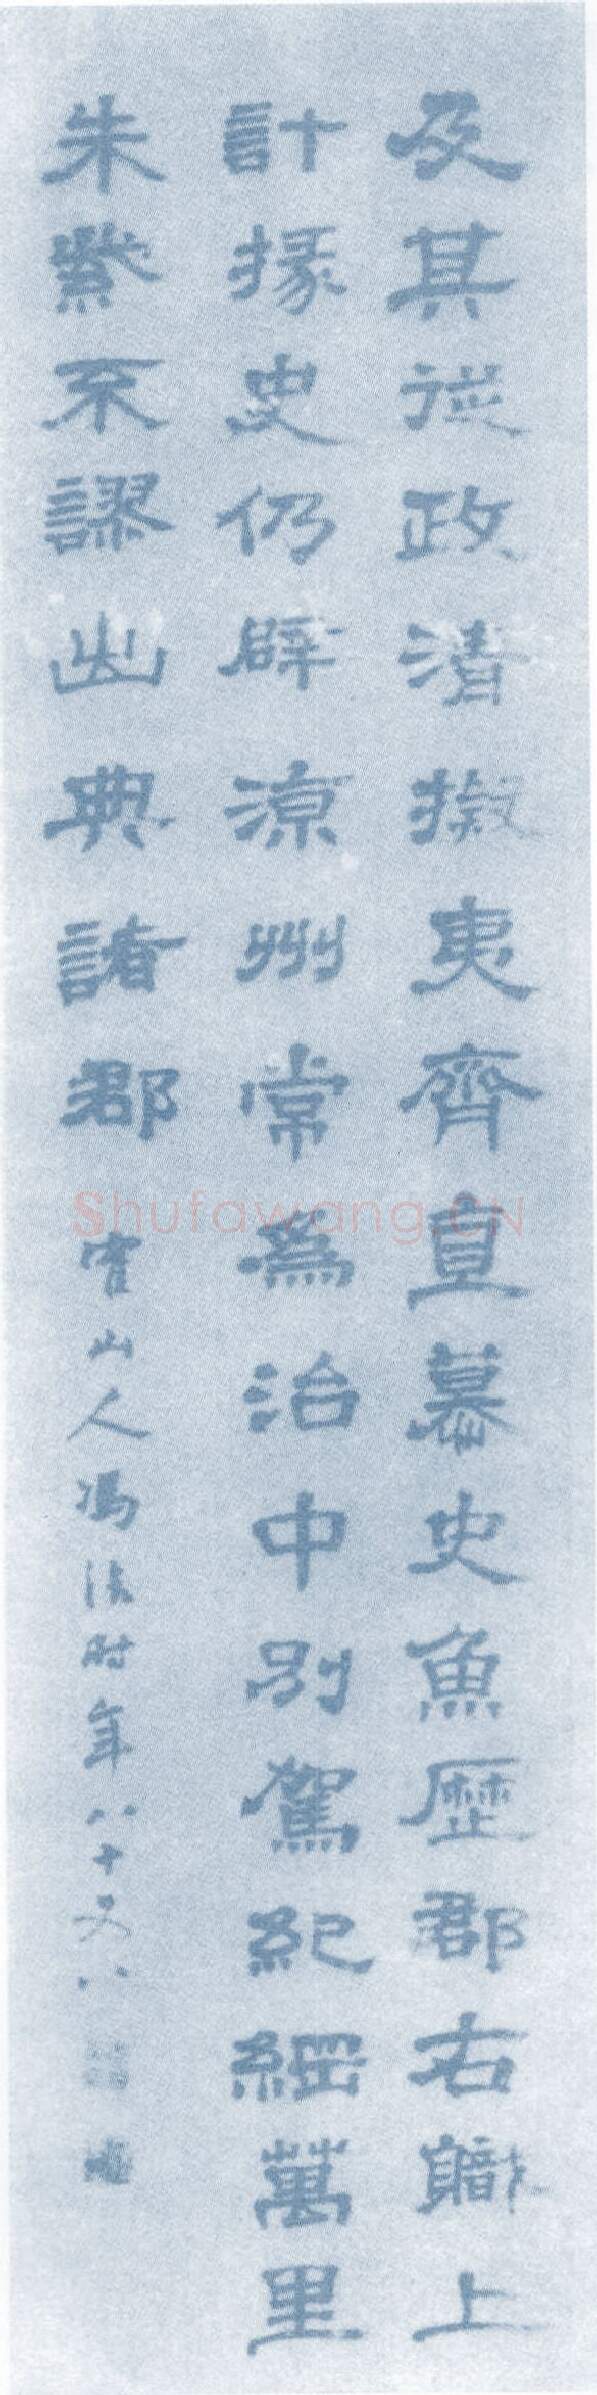 及其從政清撥夷齊直慕史魚歷郡右職上
計掾史仍辟涼州常為治中別駕紀綱萬里
朱紫不謬出典諸郡 霍山人馮 时年八十又八
Shufawang.CN